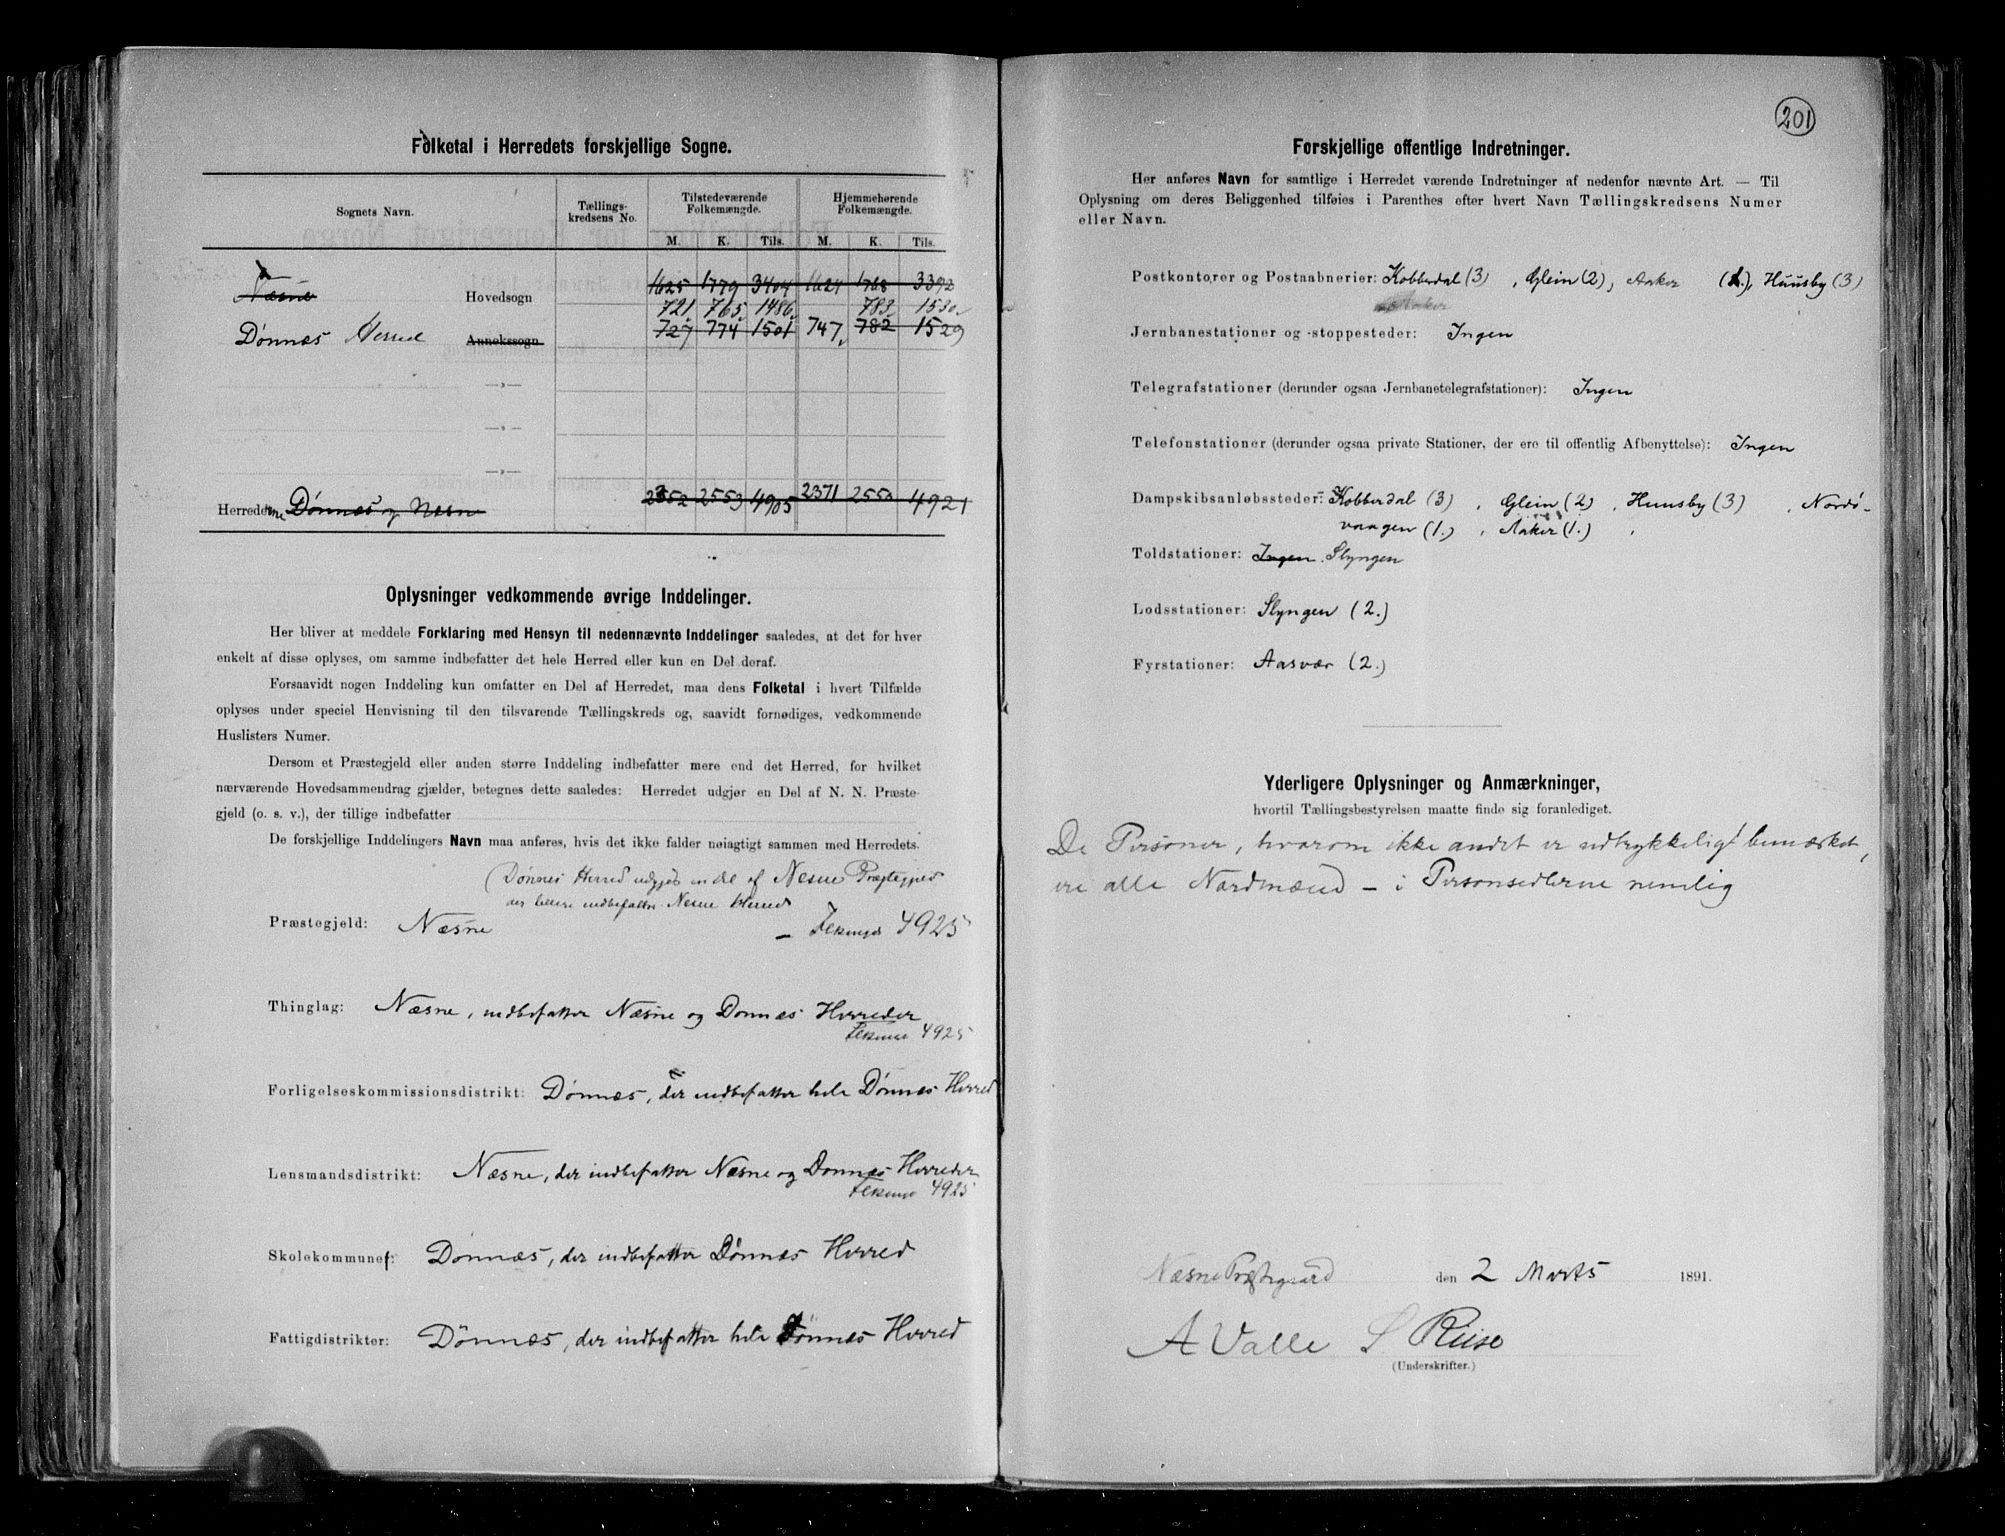 Folketal i Herredets forskjellige Sogne.
Sognets Navn.
Tællings-
kredsens No.
Tilstedeværende
Folkemængde.
Hjemmehørende
Folkemængde.
M. K. Tils. M. K. Tils.
Næsne Hovedsogn 1625 1779 3404 1624 1768 3392
721 765 1486 783 1530
Dønnæs Herred Annekssogn 727 774 1501 747 782 1529
— „ —
— „ —
— „ —
Herredet Dønnæs og Næsne 2352 2553 4905 2371 2550 4921
Oplysninger vedkommende øvrige Inddelinger.
Her bliver at meddele Forklaring med Hensyn til nedennævnte Inddelinger saaledes, at det for hver
enkelt af disse oplyses, om samme indbefatter det hele Herred eller kun en Del deraf.
Forsaavidt nogen Inddeling kun omfatter en Del af Herredet, maa dens Folketal i hvert Tilfælde
oplyses under speciel Henvisning til den tilsvarende Tællingskreds og, saavidt fornødiges, vedkommende
Huslisters Numer.
Dersom et Præstegjeld eller anden større Inddeling indbefatter mere end det Herred, for hvilket
nærværende Hovedsammendrag gjælder, betegnes dette saaledes: Herredet udgjør en Del af N. N. Præste-
gjeld (o. s. v.), der tillige indbefatter
De forskjellige Inddelingers Navn maa anføres, hvis det ikke falder nøiagtigt sammen med Herredets.
(Dønnes Herred udgjør en del af Nesne Præstegjeld
der tillige indbefatter Nesne Herred
Præstegjeld: Næsne — 4925
Thinglag: Næsne, indbefatter Næsne og Dønnæs Herreder
4925
Forligelseskommissionsdistrikt: Dønnæs, der indbefatter hele Dønnæs Herred
Lensmandsdistrikt: Næsne, der indbefatter Næsne og Dønnæs Herreder
4925
Skolekommune: Dønnæs, der indbefatter Dønnæs Herred
Fattigdistrikter: Dönnæs, der indbefatter hele Dønnæs Herred
201
Forskjellige offentlige Indretninger.
Her anføres Navn for samtlige i Herredet værende Indretninger af nedenfor nævnte Art. — Til
Oplysning om deres Beliggenhed tilføies i Parenthes efter hvert Navn Tællingskredsens Numer
eller Navn.
Postkontorer og Postaabnerier: Kobberdal (3) , Glein (2), Aaker (1.), Huusby (3)
Aaker
Jernbanestationer og -stoppesteder: Ingen
Telegrafstationer (derunder ogsaa Jernbanetelegrafstationer): Ingen
Telefonstationer (derunder ogsaa private Stationer, der ere til offentlig Afbenyttelse): Ingen
Dampskibsanløbssteder: Kobberdal (3) , Glein (2) , Huusby (3) , Nordø-
vaagen (1.) , Aaker (1.) ,
Toldstationer: Ingen. Slyngen
Lodsstationer: Slyngen (2.)
Fyrstationer: Aasvær (2.)
Yderligere Oplysninger og Anmærkninger,
hvortil Tællingsbestyrelsen maatte finde sig foranlediget.
De Personer, hvorom ikke andet er udtrykkeligt bemærket,
ere alle Nordmænd – i Personsedlerne nemlig
Næsne Præstegaard den 2 Marts 1891.
A Valle S Riise
(Underskrifter.)